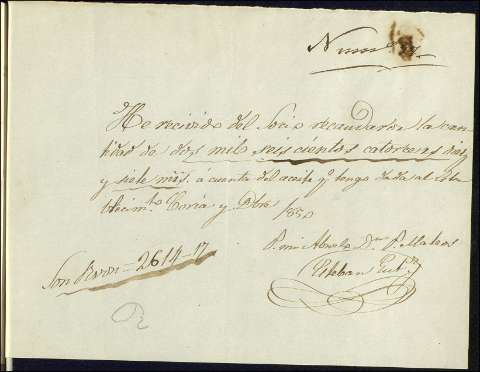 Num.
He recivido del Socio recaudador la can-
tidad de dos mil seiscientos catorce rs diez
y siete mrs. á cuenta del aceite q.e tengo dado al Esta-
blecim.to Coria y Dbre 1850
P. mi Abuelo D.n P. Mateos
Esteban
Son Rvon - 2614-17